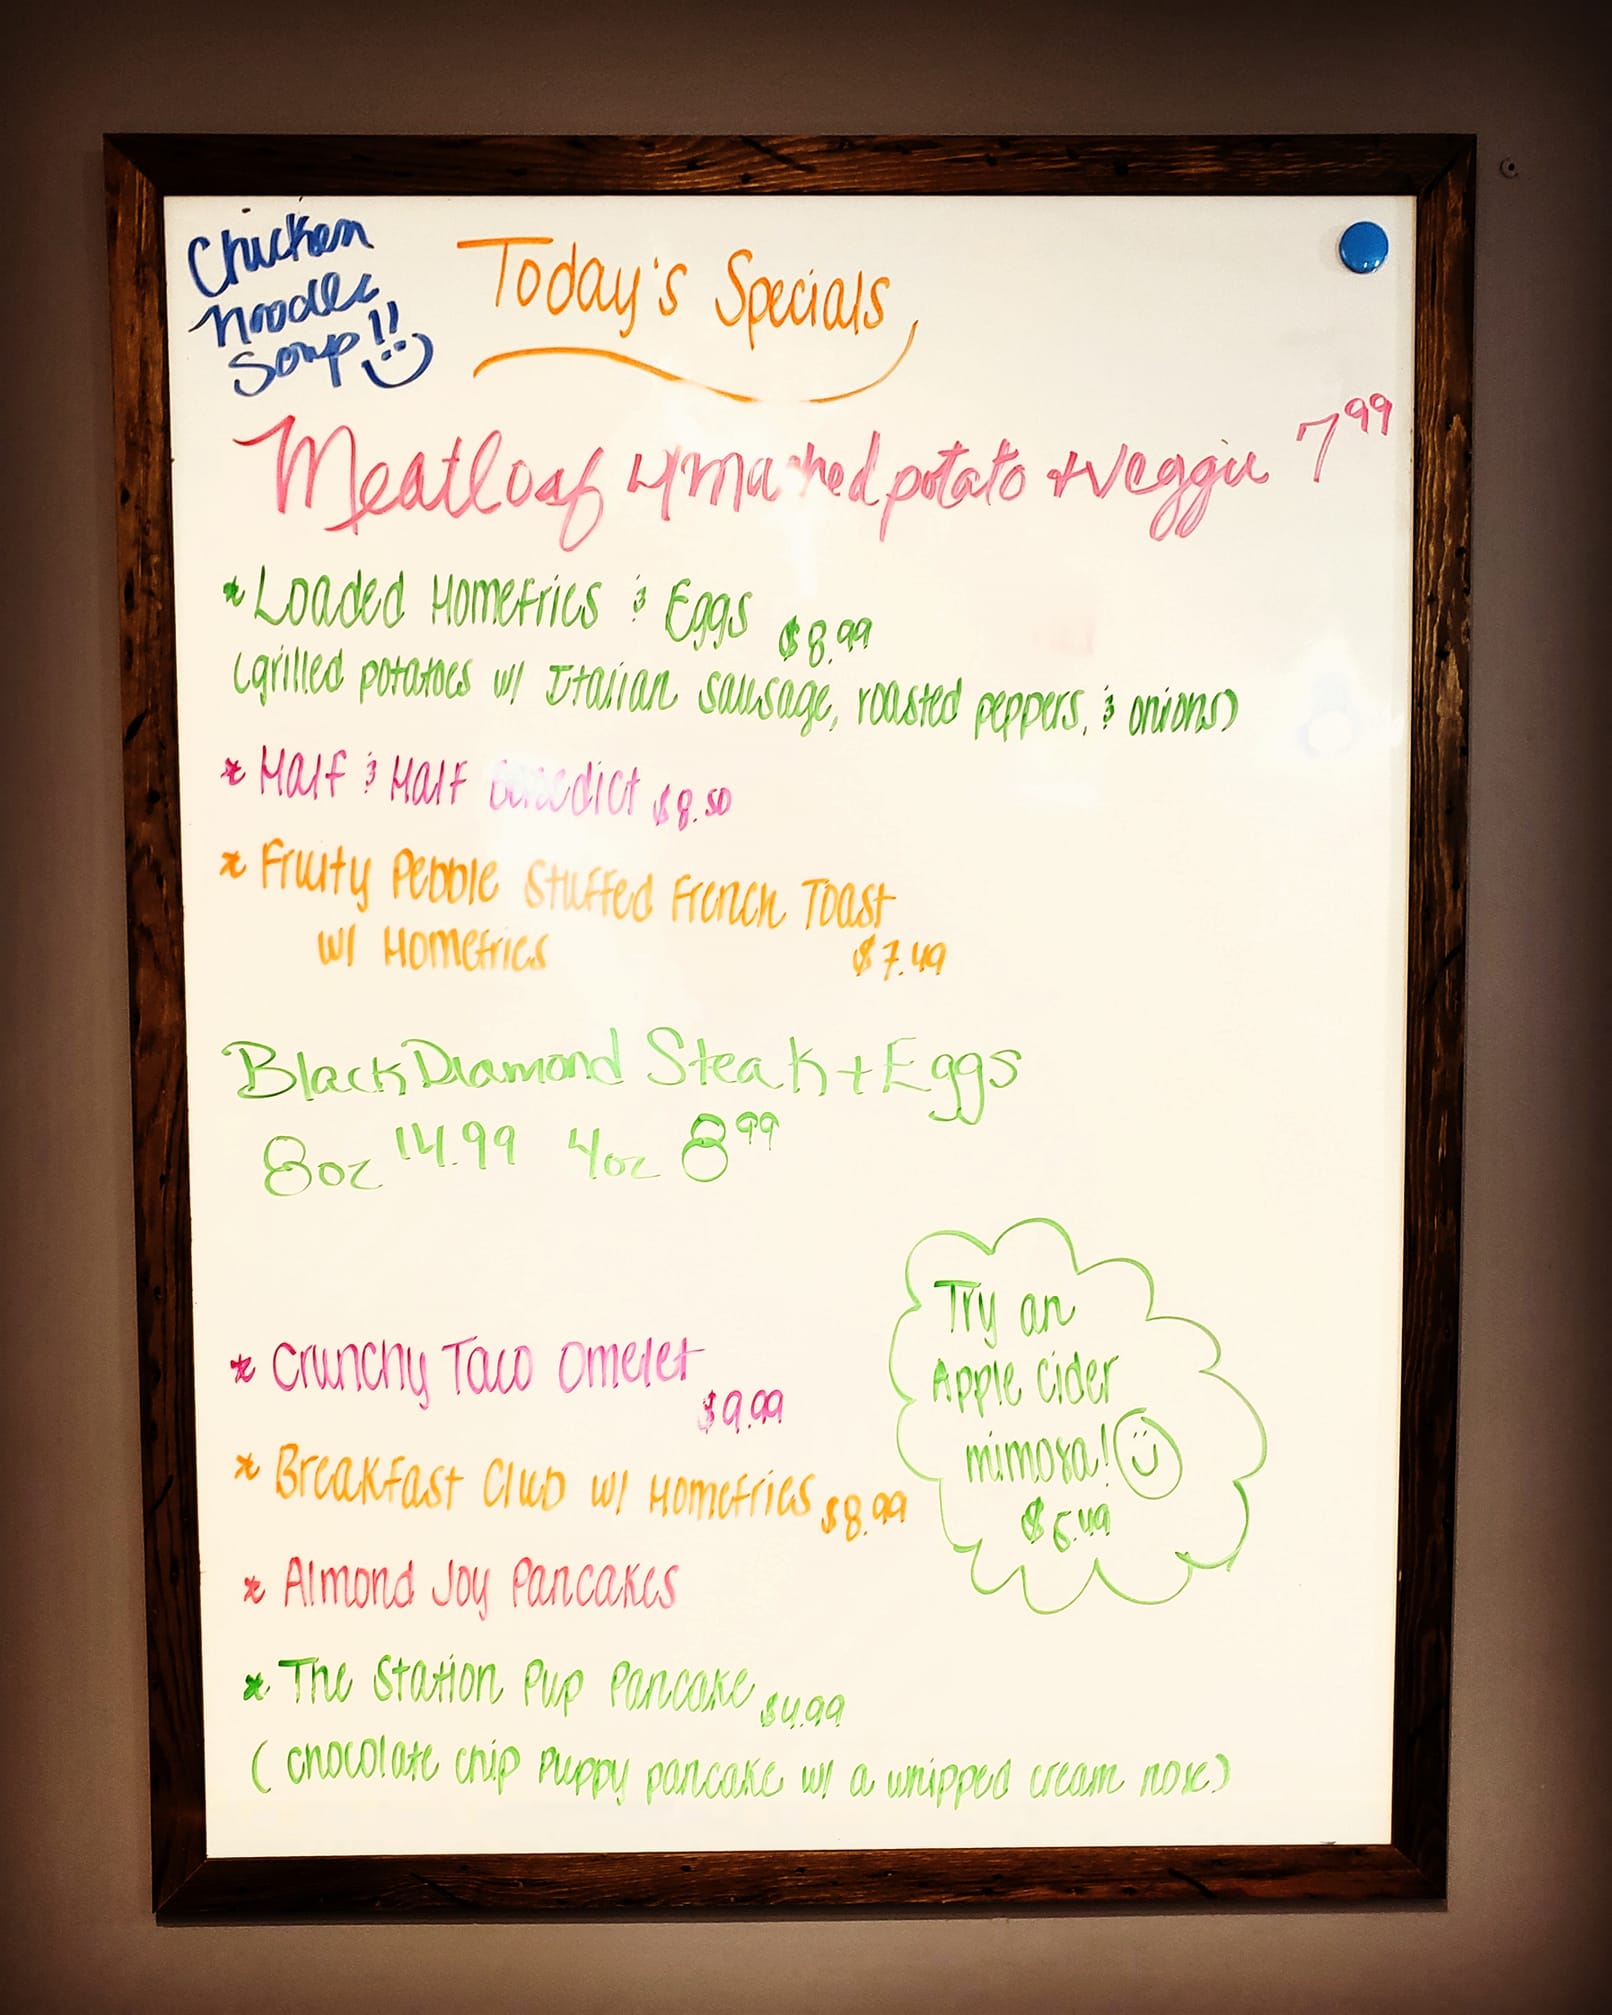 Chicken
Noodle
Soup!!
Today's Specials
Meatloaf w/ mashed potato + veggie 7⁹⁹
* Loaded Homefries & Eggs $8.99
(grilled potatoes w/ Italian sausage, roasted peppers, & onions)
* Half & Half Benedict $8.50
* Fruity Pebble Stuffed French Toast
w/ Homefries $7.49
Black Diamond Steak + Eggs
8oz 14.99 4oz 8⁹⁹
* Crunchy Taco Omelet
$9.99
* Breakfast Club w/ Homefries $8.99
* Almond Joy Pancakes
* The Station Pup Pancake $4.99
(chocolate chip puppy pancake w/ a whipped cream nose)
Try an
Apple cider
mimosa!